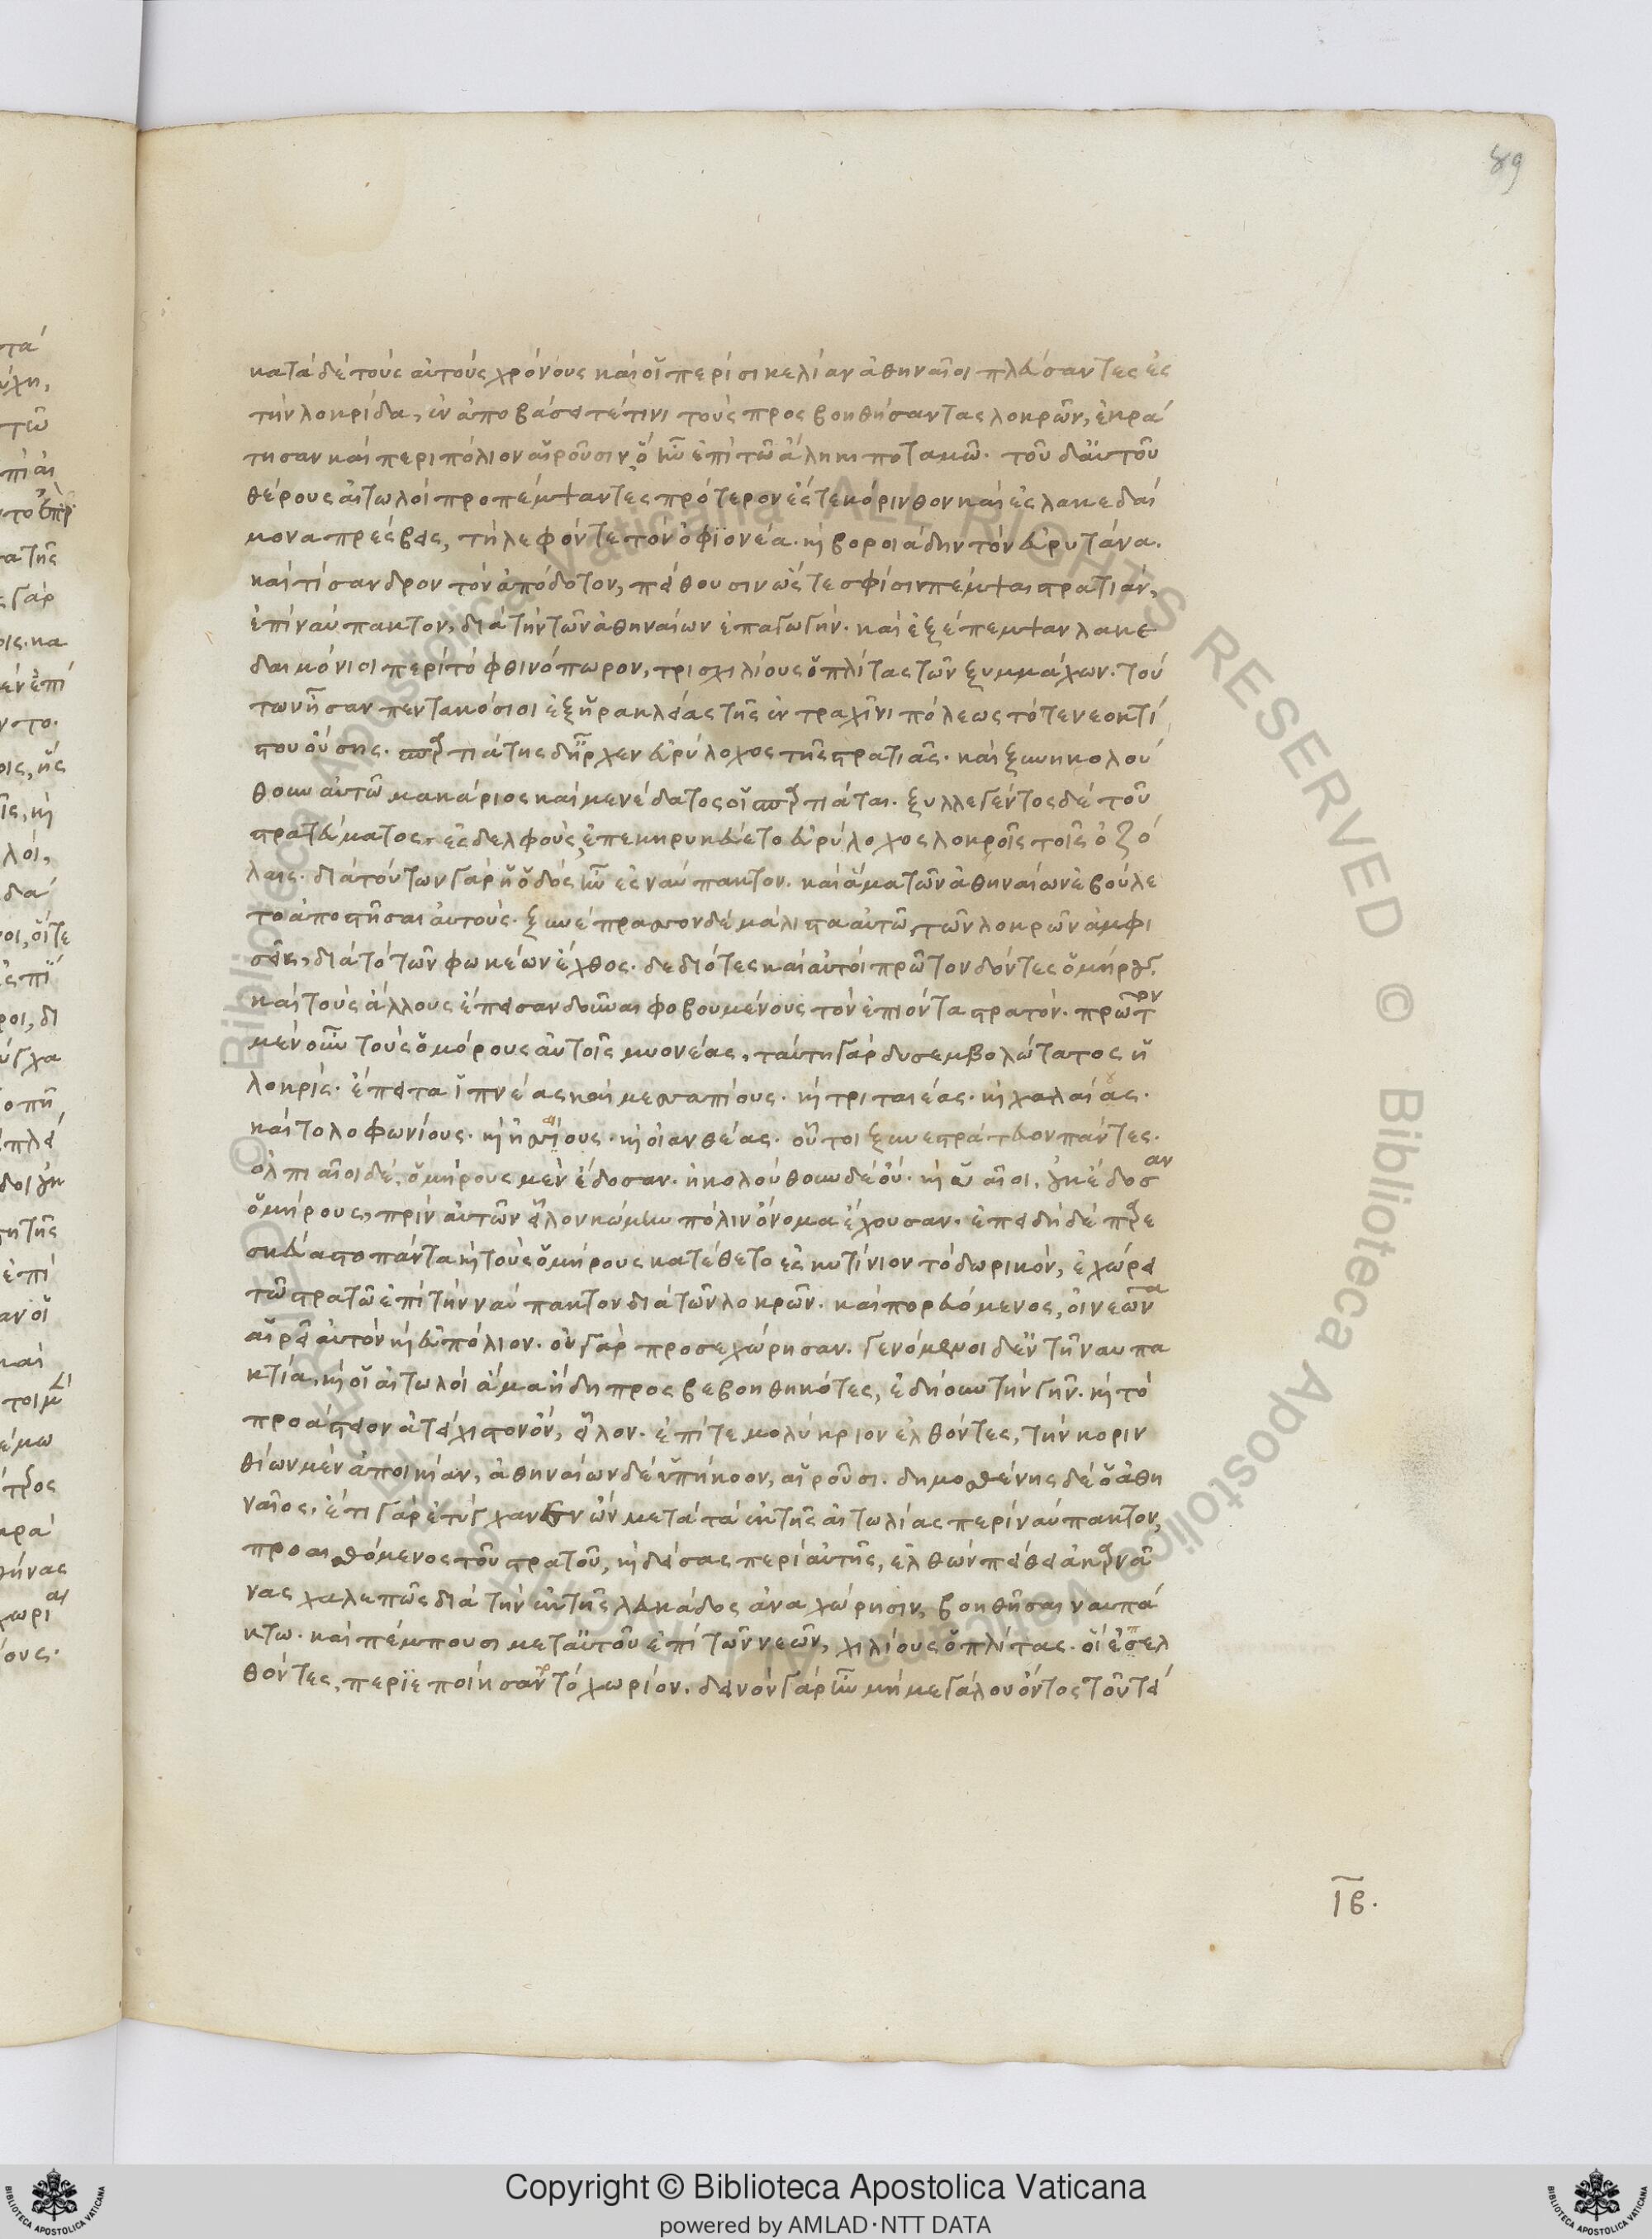 89
κατὰ δὲ τοὺς αὐτοὺς χρόνους καὶ οἱ περὶ σικελίαν ἀθηναῖοι πλεύσαντες ἐς
τὴν λοκρίδα, ἐν ἀποβάσει τέ τινι τοὺς προσβοηθήσαντας λοκρῶν, ἐκρά
τησαν καὶ περιπόλιον αἱροῦσιν, ὃ ἦν ἐπὶ τῶ ἄληκι ποταμῶ. τοῦ δ' αὐτοῦ
θέρους αἰτωλοὶ προπέμψαντες πρότερον ἔς τε κόρινθον καὶ ἐς λακεδαί
μονα πρέσβεις, τήλεφόν τε τὸν ὀφιονέα. κὶ βοροιάδην τὸν εὐρυτάνα.
καὶ τίσανδρον τὸν ἀπόδοτον, πείθουσιν ὥστε σφίσιν πέμψαι στρατιάν,
ἐπὶ ναύπακτον, διὰ τὴν τῶν ἀθηναίων ἐπαγωγήν. καὶ ἐξέπεμψαν λακε
δαιμόνιοι περὶ τὸ φθινόπωρον, τρισχιλίους ὁπλίτας τῶν ξυμμάχων. τού
των ἦσαν πεντακόσιοι ἐξ ἡρακλείας τῆς ἐν τραχῖνι πόλεως τότε νεοκτί
στου οὔσης. σπαρτιάτης δ' ἦρχεν εὐρύλοχος τῆς στρατιᾶς. καὶ ξυνηκολού
θουν αὐτῶ μακάριος καὶ μενέδατος οἱ σπαρτιάται. ξυλλεγέντος δὲ τοῦ
στρατεύματος ἐς δελφοὺς, ἐπεκηρυκεύετο εὐρύλοχος λοκροῖς τοῖς ὀζό
λαις. διὰ τούτων γὰρ ἡ ὁδὸς ἦν ἐς ναύπακτον. καὶ ἅμα τῶν ἀθηναίων ἐβούλε
το ἀποστῆσαι αὐτούς. ξυνέπρασσον δὲ μάλιστα αὐτῶ, τῶν λοκρῶν ἀμφι
σσεῖς, διὰ τὸ τῶν φωκέων ἔχθος. δεδιότες καὶ αὐτοὶ πρῶτον δόντες ὁμήρους.
καὶ τοὺς ἄλλους ἔπεισαν δοῦναι φοβουμένους τὸν ἐπιόντα στρατόν. πρῶτον
μὲν οὖν τοὺς ὁμόρους αὐτοῖς μυονέας, ταύτη γὰρ δυσεμβολώτατος ἡ
λοκρίς. ἔπειτα ἰπνέας καὶ μεσσαπίους. κὶ τριταιέας. κὶ χαλαίους.
καὶ τολοφωνίους. κὶ ἡσσίους. κὶ οἰανθέας. οὗτοι ξυνεστράτευον πάντες.
ὀλπαῖοι δὲ, ὁμήρους μὲν ἔδοσαν. ἠκολούθουν δὲ οὔ. κὶ ὑαῖοι, οὐκ ἔδοσαν
ὁμήρους, πρὶν αὐτῶν εἷλον κώμην πόλιν ὄνομα ἔχουσαν. ἐπειδὴ δὲ παρε
σκεύαστο πάντα κὶ τοὺς ὁμήρους κατέθετο ἐς κυτίνιον τὸ δωρικόν, ἐχώρει
τῶ στρατῶ ἐπὶ τὴν ναύπακτον διὰ τῶν λοκρῶν. καὶ πορευόμενος, οἰνεῶνα
αἱρεῖ αὐτῶν κὶ εὐπόλιον. οὐ γὰρ προσεχώρησαν. γενόμενοι δ' ἐν τῆ ναυπα
κτία, κὶ οἱ αἰτωλοὶ ἅμα ἤδη προσβεβοηθηκότες, ἐδήουν τὴν γῆν. κὶ τὸ
προάστειον ἀτείχιστον ὂν, εἷλον. ἐπί τε μολύκριον ἐλθόντες, τὴν κοριν
θίων μὲν ἀποικίαν, ἀθηναίων δὲ ὑπήκοον, αἱροῦσι. δημοσθένης δὲ ὁ ἀθη
ναῖος, ἔτι γὰρ ἐτύγχανεν ὢν μετὰ τὰ ἐκ τῆς αἰτωλίας περὶ ναύπακτον,
προαισθόμενος τοῦ στρατοῦ, κὶ δείσας περὶ αὐτῆς, ἐλθὼν πείθει ἀκαρνᾶ
νας χαλεπῶς διὰ τὴν ἐκ τῆς λευκάδος ἀναχώρησιν, βοηθῆσαι ναυπά
κτω. καὶ πέμπουσι μετ' αὐτοῦ ἐπὶ τῶν νεῶν, χιλίους ὁπλίτας. οἳ ἐσελ
θόντες, περιεποίησαν τὸ χωρίον. δεινὸν γὰρ ἦν μὴ μεγάλου ὄντος τοῦ τεί
ιβ.
Copyright © Biblioteca Apostolica Vaticana
powered by AMLAD·NTT DATA